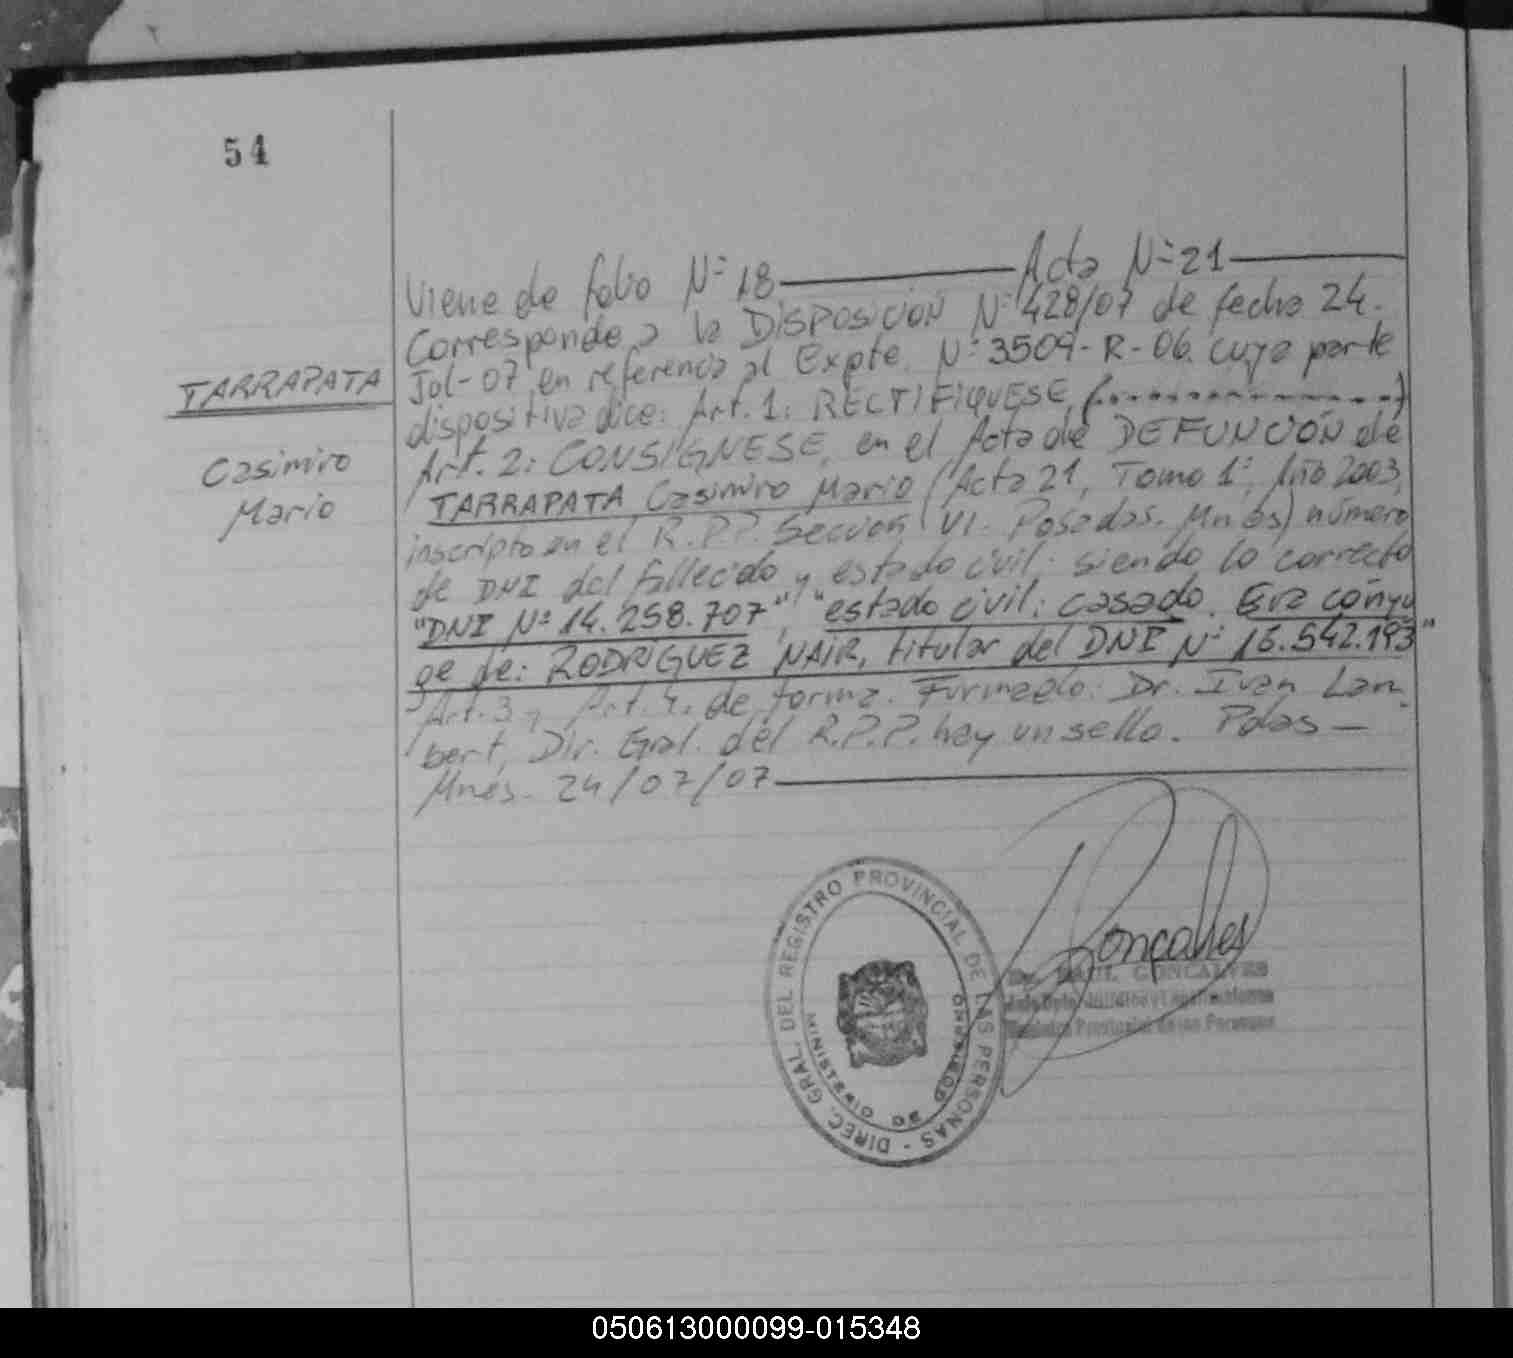 54
Viene de folio Nº 18 Acta Nº 21
Corresponde a la DISPOSICIÓN Nº 428/07 de fecha 24-
Jul-07 en referencia al Expte. Nº 3509-R-06. cuya parte
dispositiva dice: Art. 1: RECTIFIQUESE, (..............)
Art. 2: CONSIGNESE, en el Acta de DEFUNCIÓN de
TARRAPATA Casimiro Mario (Acta 21, Tomo 1º, Año 2003,
inscripto en el R.P.P. Sección VI. Posadas. Mnes) número
de DNI del fallecido y estado civil: siendo lo correcto
"DNI Nº 14.258.707", "estado civil: casado. Era cónyu
ge de: RODRÍGUEZ NAIR, titular del DNI Nº 16.542.193"
Art. 3 y Art. 4. de forma. Firmado: Dr. Ivan Lam-
bert, Dir. Gral. del R.P.P. hay un sello. Pdas -
Mnes. 24/07/07
TARRAPATA
Casimiro
Mario
DIREC. GRAL. DEL REGISTRO PROVINCIAL DE LAS PERSONAS -
MINISTERIO DE GOBIERNO
Goncalves
RAUL GONCALVES
Registro Provincial de las Personas
050613000099-015348